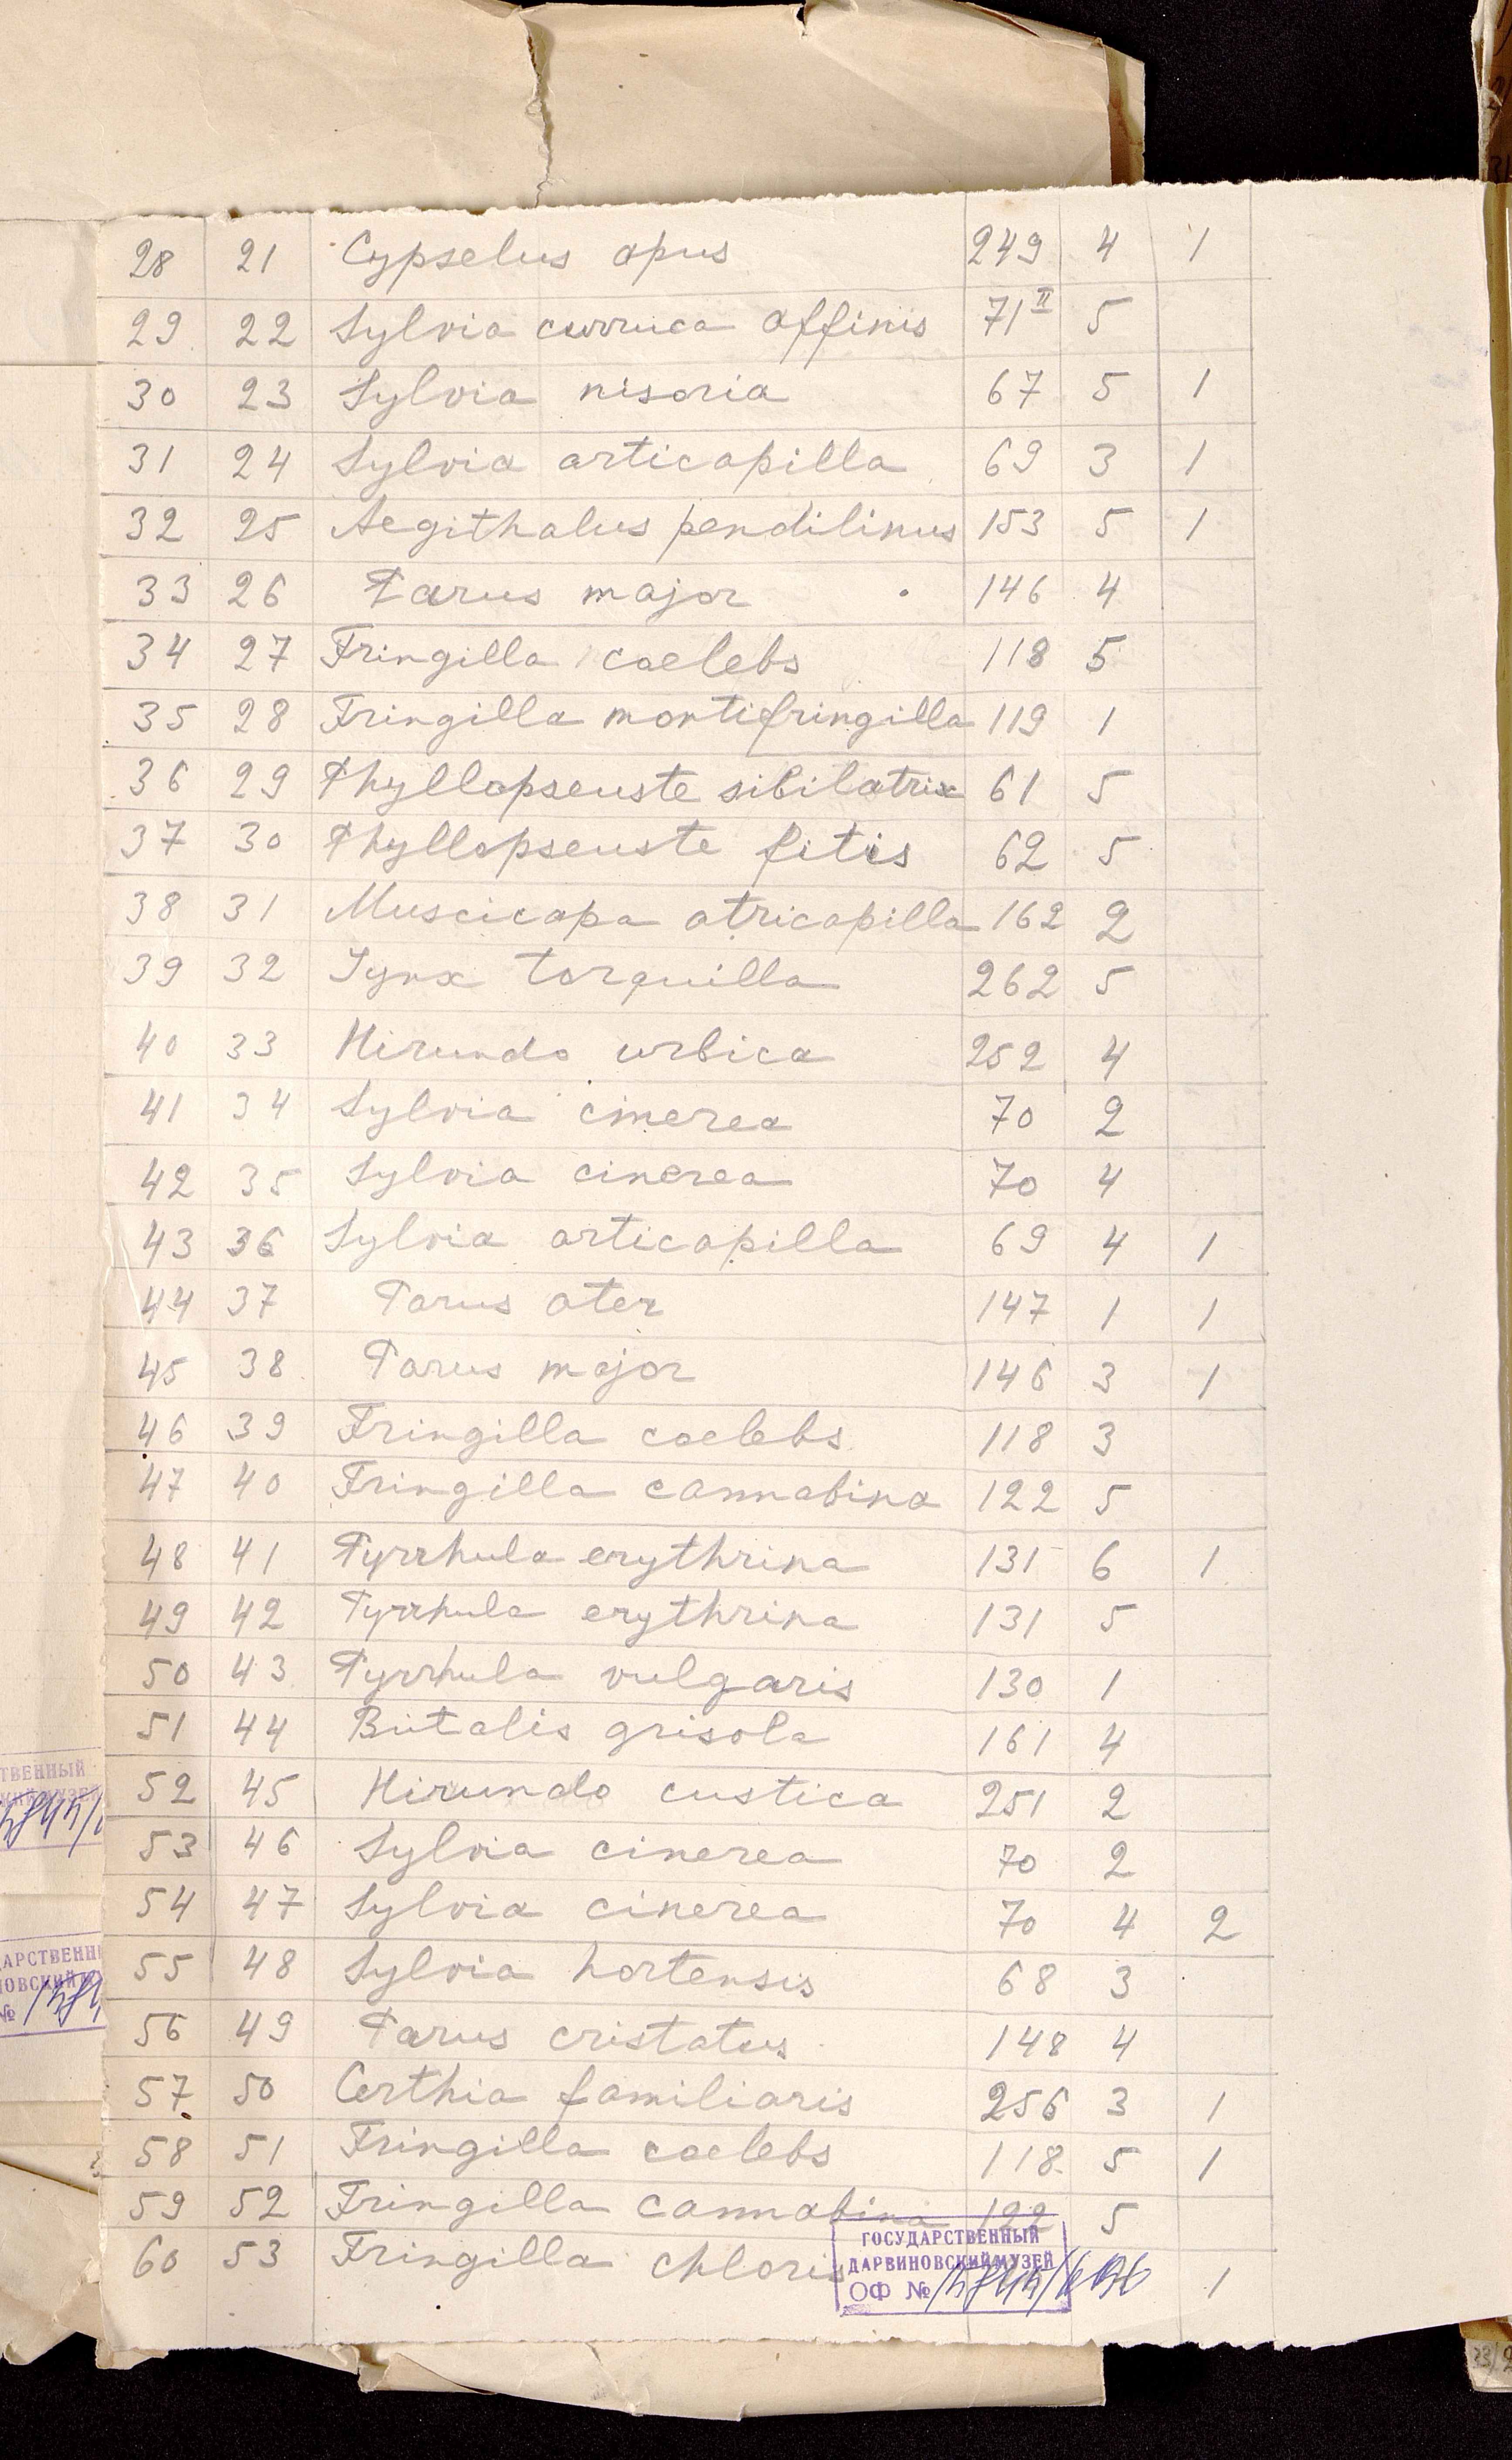 28 21 Cypselus apus 249 4 1
29 22 Sylvia curruca affinis 71 II 5
30 23 Sylvia nisoria 67 5 1
31 24 Sylvia articapilla 69 3 1
32 25 Aegithalus pendilinus 153 5 1
33 26 Parus major 146 4
34 27 Fringilla coelebs 118 5
35 28 Fringilla montifringilla 119 1
36 29 Phyllopseuste sibilatrix 61 5
37 30 Phyllopseuste fitis 62 5
38 31 Muscicapa atricapilla 162 2
39 32 Iynx torquilla 262 5
40 33 Hirundo urbica 252 4
41 34 Sylvia cinerea 70 2
42 35 Sylvia cinerea 70 4
43 36 Sylvia articapilla 69 4 1
44 37 Parus ater 147 1 1
45 38 Parus major 146 3 1
46 39 Fringilla coelebs 118 3
47 40 Fringilla cannabina 122 5
48 41 Pyrrhula erythrina 131 6 1
49 42 Pyrrhula erythrina 131 5
50 43 Pyrrhula vulgaris 130 1
51 44 Butalis grisola 161 4
52 45 Hirundo custica 251 2
53 46 Sylvia cinerea 70 2
54 47 Sylvia cinerea 70 4 2
55 48 Sylvia hortensis 68 3
56 49 Parus cristatus 148 4
57 50 Certhia familiaris 256 3 1
58 51 Fringilla coelebs 118 5 1
59 52 Fringilla cannabina 122 5
60 53 Fringilla chloris 1
ГОСУДАРСТВЕННЫЙ
ДАРВИНОВСКИЙ МУЗЕЙ
ОФ №